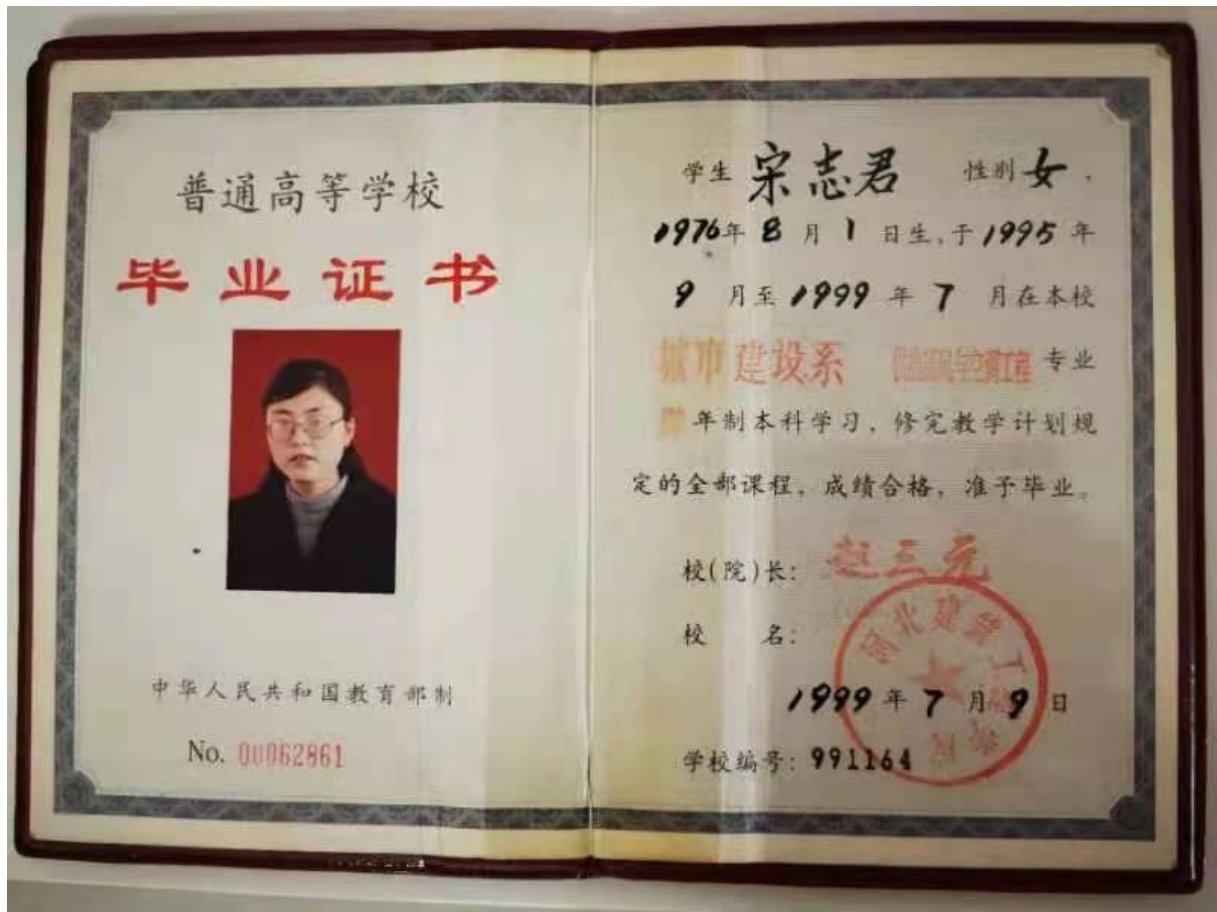 普通高等学校
毕业证书
中华人民共和国教育部制
No. 00062861
学生 宋志君 性别 女，
1976年 8 月 1 日生，于 1995 年
9 月至 1999 年 7 月在本校
城市建设系 专业
年制本科学习，修完教学计划规
定的全部课程，成绩合格，准予毕业。
校(院)长: 赵三元
校 名:
河北建筑工程学院
1999 年 7 月 9 日
学校编号: 991164